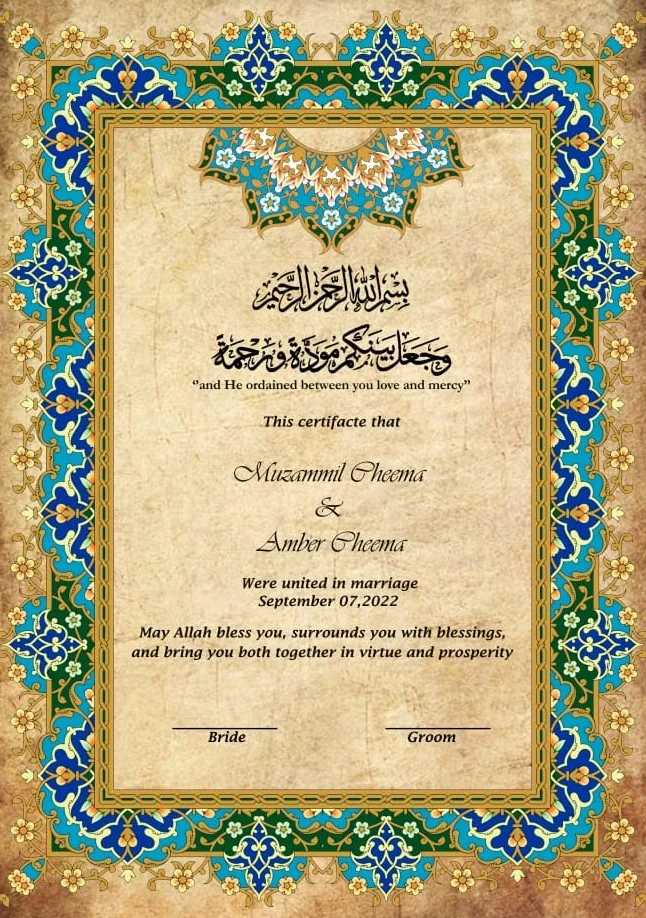 بِسْمِ اللهِ الرَّحْمٰنِ الرَّحِيْمِ
وَجَعَلَ بَيْنَكُمْ مَوَدَّةً وَرَحْمَةً
"and He ordained between you love and mercy"
This certifacte that
Muzammil Cheema
&
Amber Cheema
Were united in marriage
September 07,2022
May Allah bless you, surrounds you with blessings,
and bring you both together in virtue and prosperity
Bride Groom